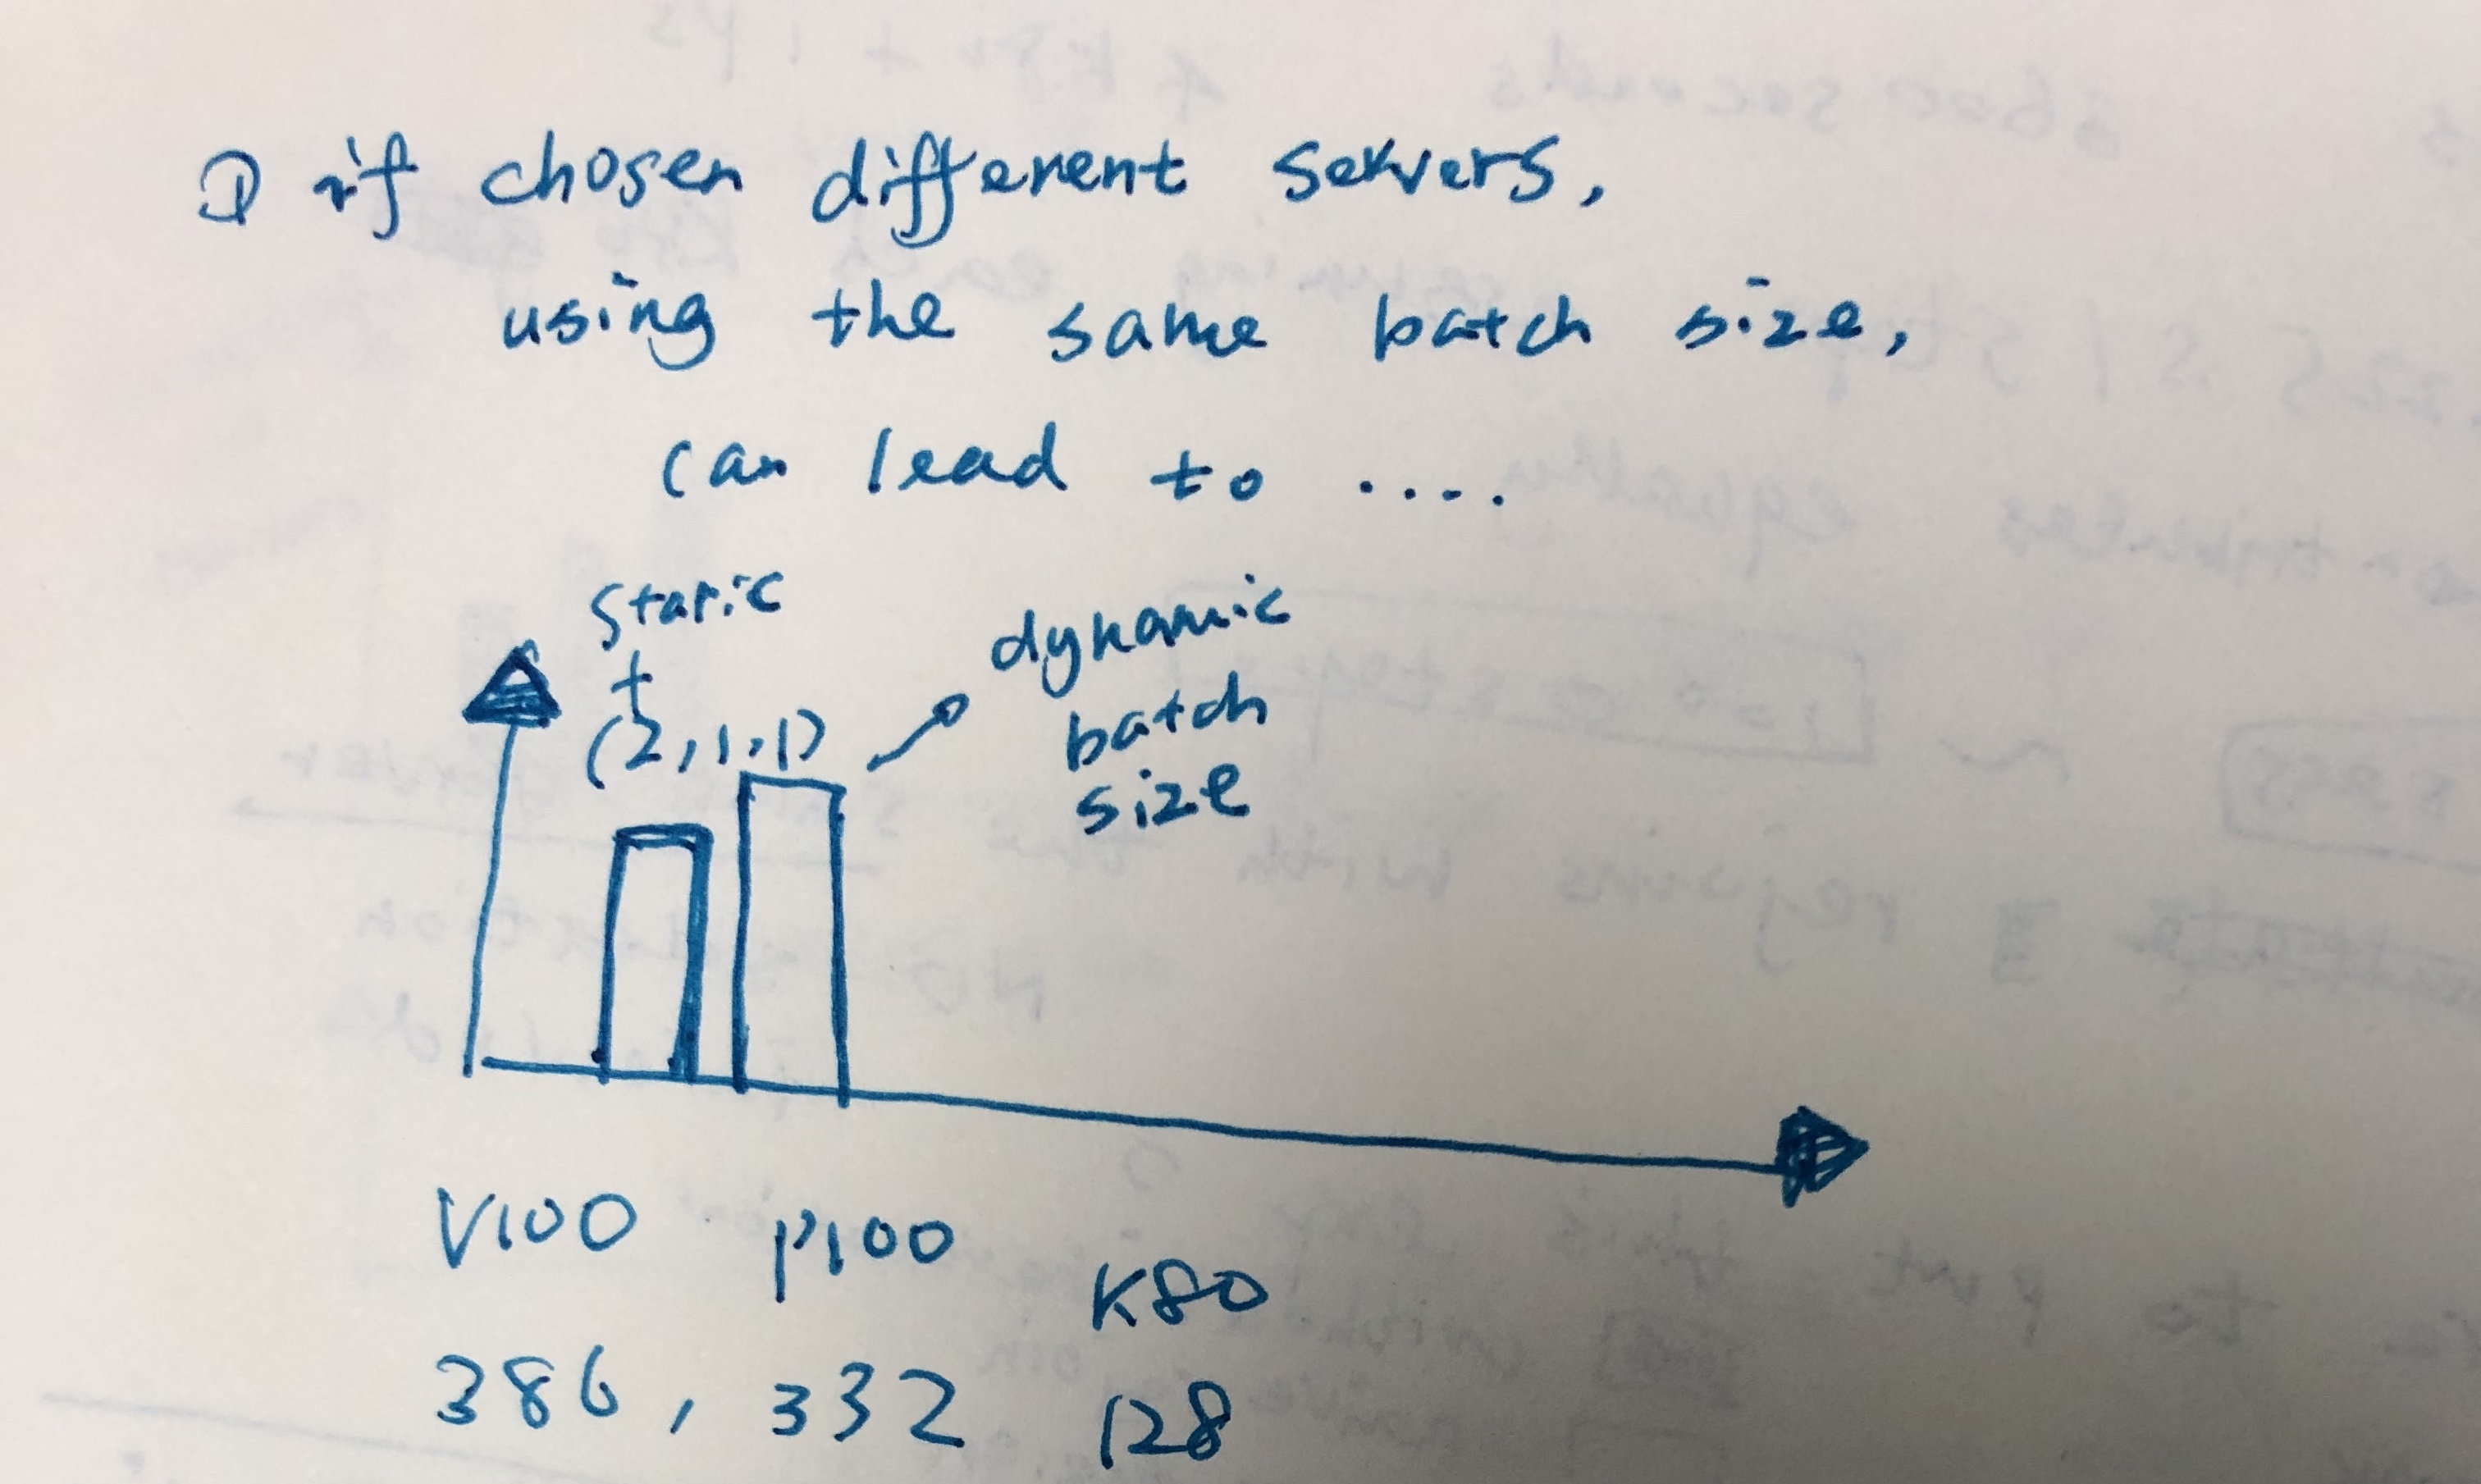 ① if chosen different servers,
using the same batch size,
can lead to ....
static
+
(2,1,1)
dynamic
batch
size
V100 P100 K80
386, 332 128